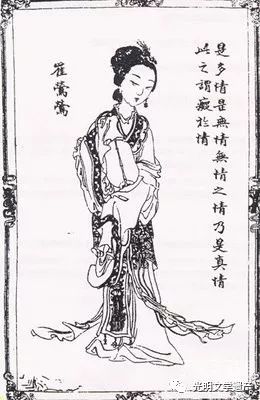 是多情是無情無情之情乃是真情
此之謂癡於情
崔鶯鶯
光明文学遗产